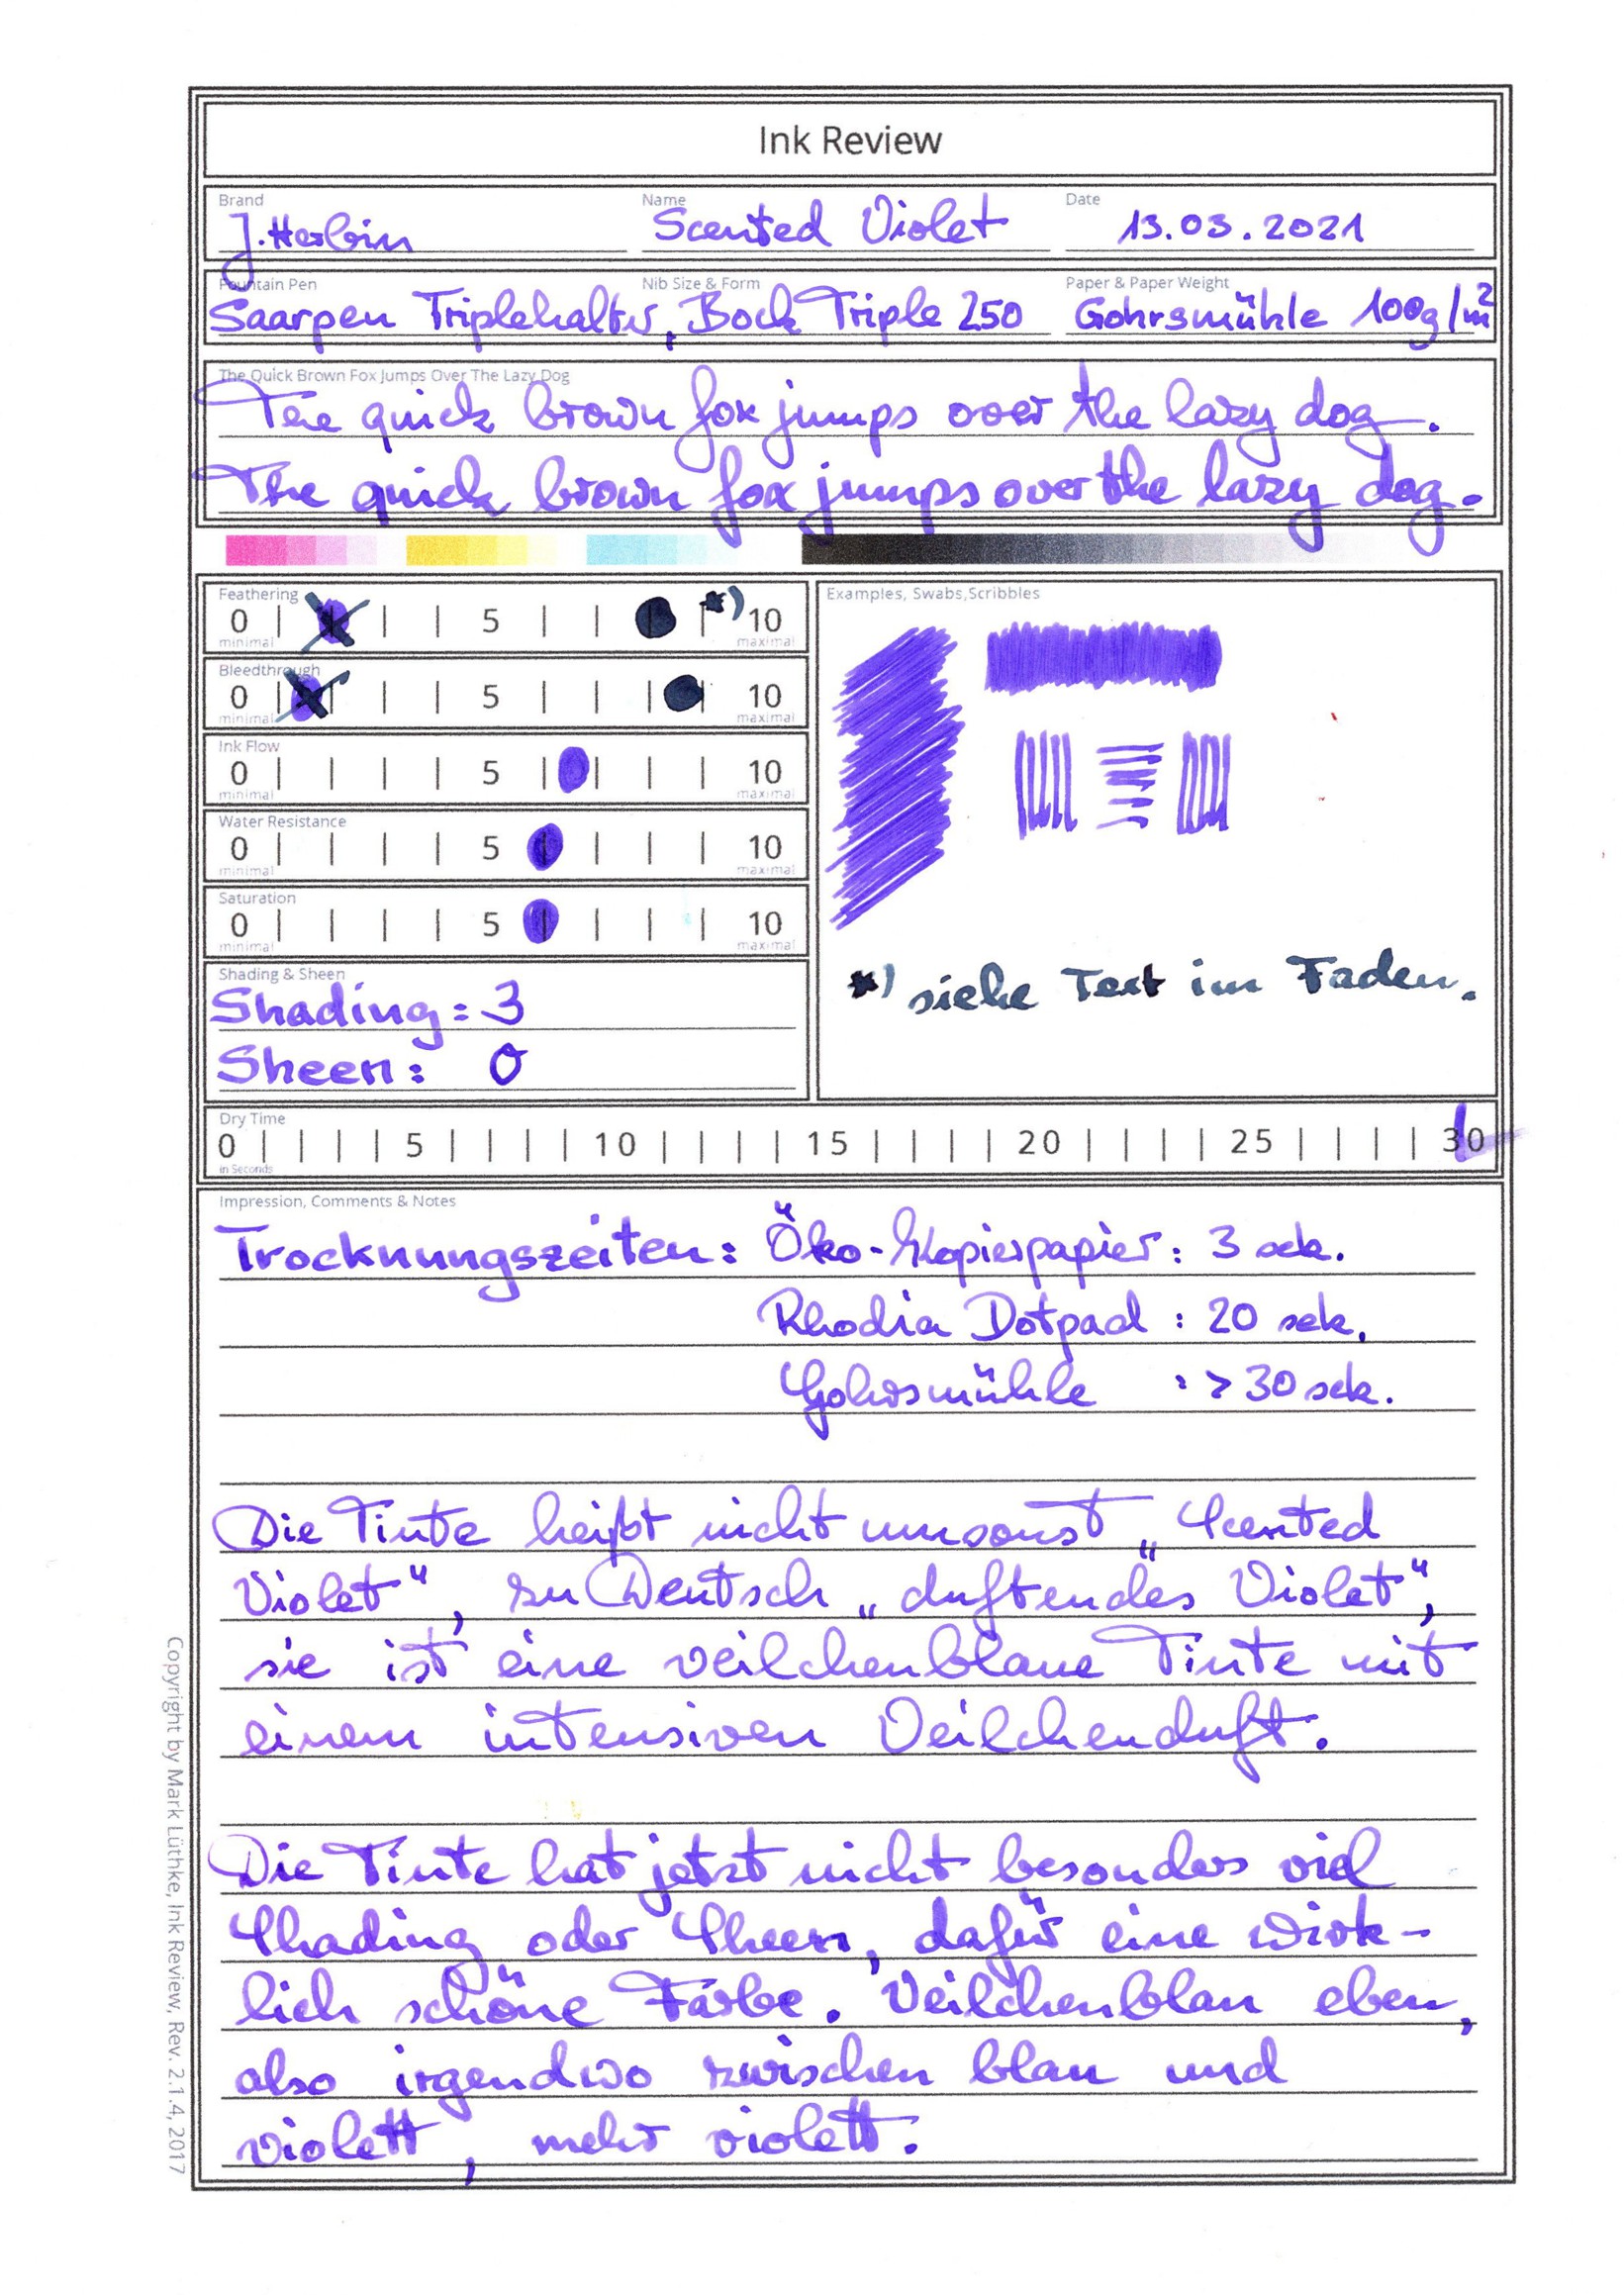 Ink Review
Brand Name Date
J. Herbin Scented Violet 13.03.2021
Fountain Pen Nib Size & Form Paper & Paper Weight
Saarpen Triplehalter, Bock Triple 250 Gohrsmühle 100g/m²
The Quick Brown Fox Jumps Over The Lazy Dog
The quick brown fox jumps over the lazy dog.
The quick brown fox jumps over the lazy dog.
Feathering
0 | | | | 5 | | | | *) 10
minimal maximal
Bleedthrough
0 | | | | 5 | | | | 10
minimal maximal
Ink Flow
0 | | | | 5 | | | | 10
minimal maximal
Water Resistance
0 | | | | 5 | | | | 10
minimal maximal
Saturation
0 | | | | 5 | | | | 10
minimal maximal
Shading & Sheen
Shading: 3
Sheen: 0
Examples, Swabs,Scribbles
*) siehe Text im Faden.
Dry Time
0 | | | | 5 | | | | 10 | | | | 15 | | | | 20 | | | | 25 | | | | 30
in Seconds
Impression, Comments & Notes
Trocknungszeiten: Öko-Kopierpapier: 3 sek.
Rhodia Dotpad : 20 sek.
Gohrsmühle : > 30 sek.
Die Tinte heißt nicht umsonst „Scented
Violet“, zu Deutsch „duftendes Violet“,
sie ist eine veilchenblaue Tinte mit
einem intensiven Veilchenduft.
Die Tinte hat jetzt nicht besonders viel
Shading oder Sheen, dafür eine wirk-
lich schöne Farbe. Veilchenblau eben,
also irgendwo zwischen blau und
violett, mehr violett.
Copyright by Mark Lüthke, Ink Review, Rev. 2.1.4, 2017